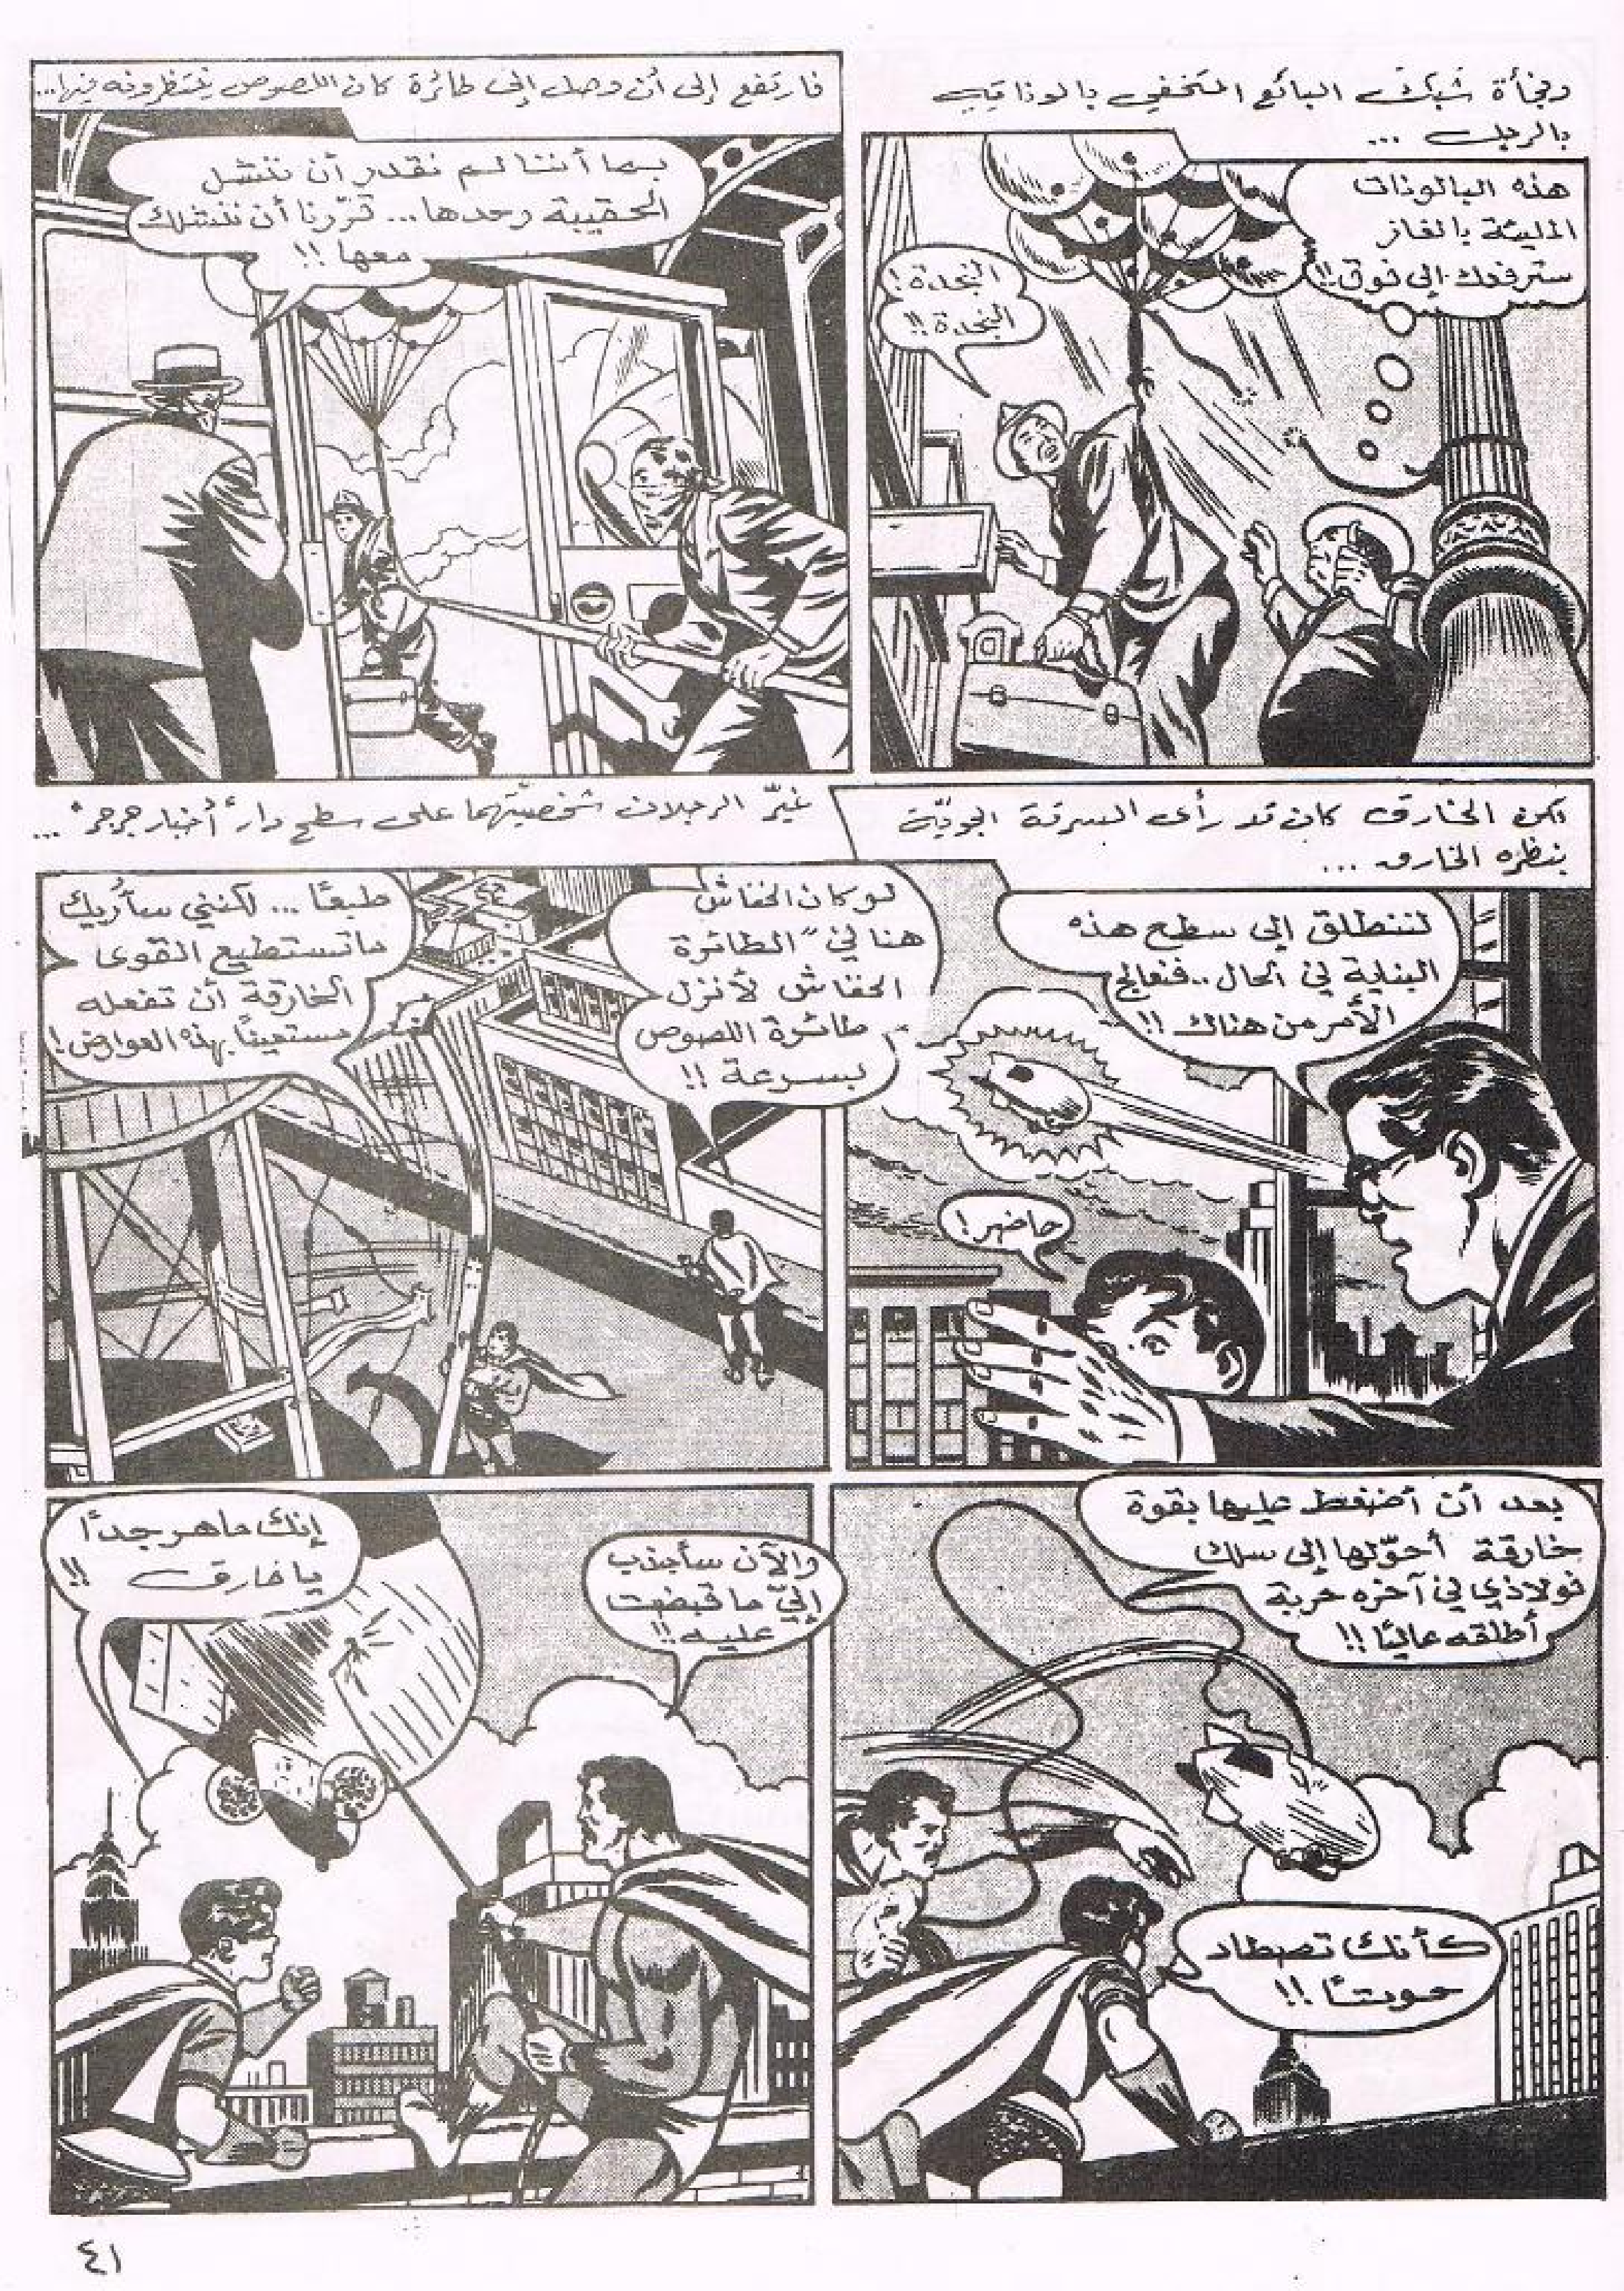 وفجأة شبك البائع المتخفي بالوناته
بالرجل ...
هذه البالونات
المليئة بالغاز
سترفعك إلى فوق!!
النجدة!
النجدة!!
فارتفع إلى أن وصل إلى طائرة كان اللصوص ينتظرونه فيها...
بما أننا لم نقدر أن ننشل
الحقيبة وحدها... قرّرنا أن ننشلك
معها!!
لكن الخارق كان قد رأى السرقة الجويّة
بنظره الخارق ...
لننطلق إلى سطح هذه
البناية في الحال.. فنعالج
الأمر من هناك!!
حاضر!
غيّر الرجلان شخصيّتهما على سطح دار "أخبار جرجر" ...
لو كان الخفاش
هنا في "الطائرة
الخفاش" لأنزل
طائرة اللصوص
بسرعة!!
طبعًا ... لكنني سأُريك
ما تستطيع القوى
الخارقة أن تفعله
مستعينًا بهذه العوارض!
بعد أن أضغط عليها بقوة
خارقة أحوّلها إلى سلك
فولاذي في آخره حربة
أطلقه عاليًا!!
كأنك تصطاد
حوتًا!!
والآن سأجذب
إليّ ما قبضت
عليه!!
إنك ماهر جدًا
يا خارق!!
٤١